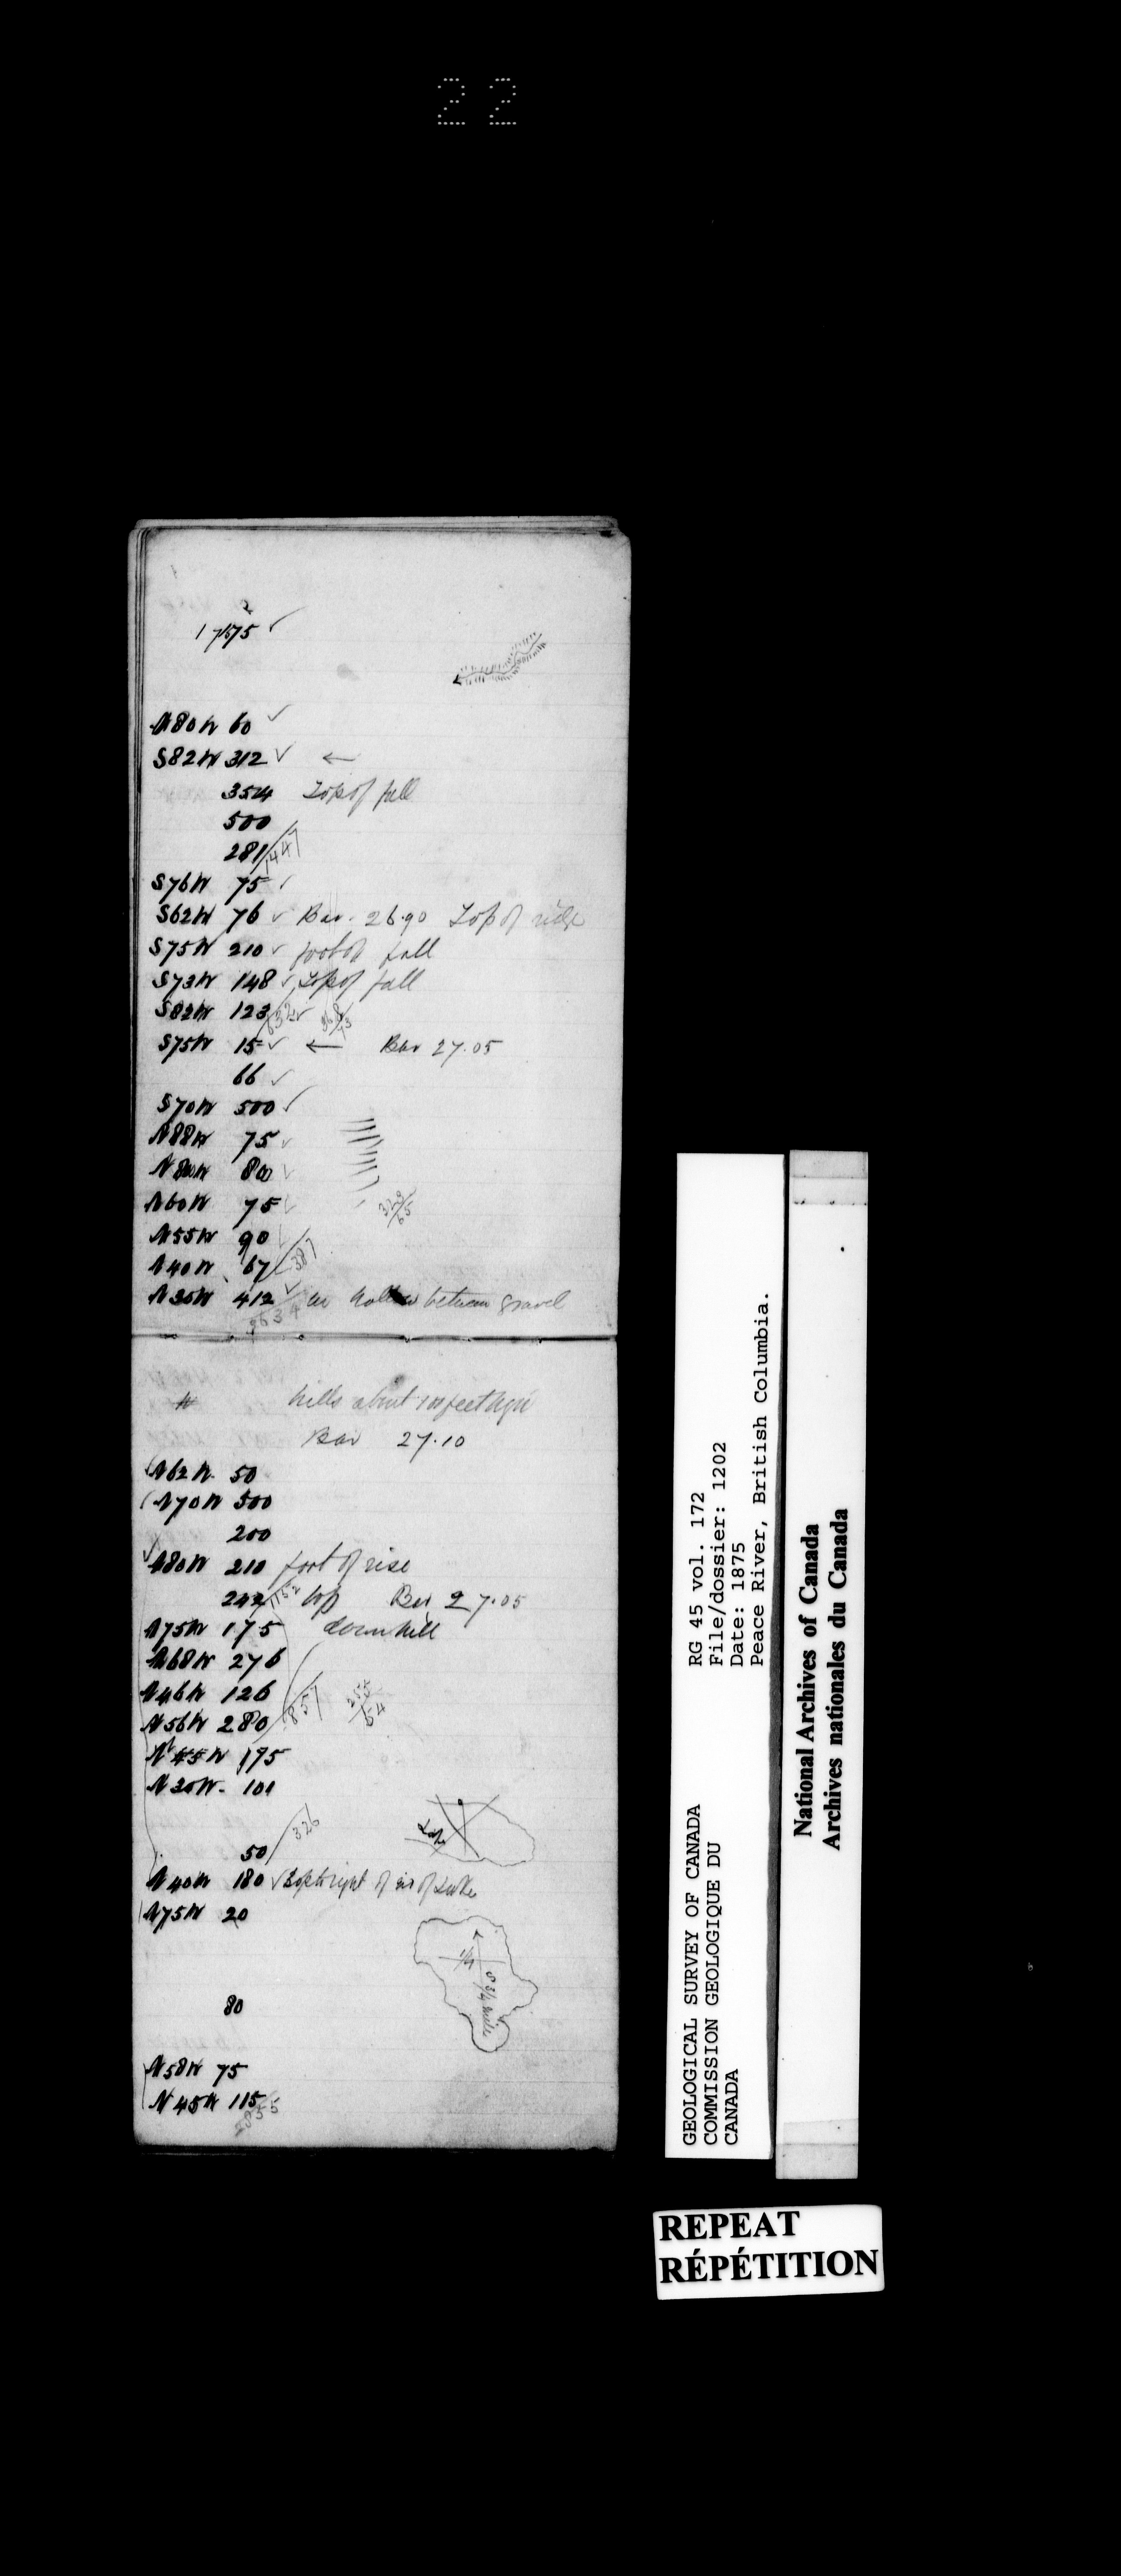 22
2
17675 ✓
N80W 60 ✓
S82W 312 ✓ ←
354 Top of fall
500
281 / 1447
S76W 75 ✓
S62W 76 ✓ Bar. 26.90 Top of ridge
S75W 210 ✓ foot of fall
S73W 148 ✓ Top of fall
S82W 123 / 632 ✓
S75W 15 ✓ ← Bar 27.05
66 ✓
S70W 500 ✓
N88W 75 ✓
N80W 80 ✓
N60W 75 ✓
329/65
N55W 90
N40W 67 / 387
N30W 412 ✓ in hollow between gravel
2634
hills about 100 feet high
Bar 27.10
N62W. 50
N70W 500
200
N80W 210 foot of rise
242 / 1152 top Bar 27.05
N75W 175 down hill
N68W 276
N46W 126
N56W 280 / 857
255/64
N45W 175
N30W. 101
50 / 326
N40W 180 ✓ of Lake
N75W 20
3/4 mile
80
N58W 75
N45W 115
2855
GEOLOGICAL SURVEY OF CANADA
COMMISSION GEOLOGIQUE DU
CANADA
RG 45 vol. 172
File/dossier: 1202
Date: 1875
Peace River, British Columbia.
National Archives of Canada
Archives nationales du Canada
REPEAT
RÉPÉTITION